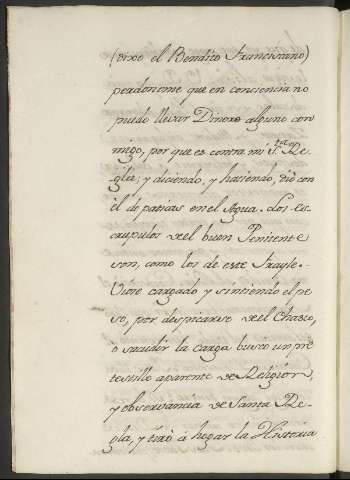 (dixo el Bendito Franciscano)
perdoneme que en conciencia no
puedo llevar Dinero alguno con
migo, por que es contra mi S.ta Re-
gla; y diciendo, y haciendo, dió con
él de patitas en el Agua. Los es-
crupulos del buen Penitente
son, como los de este Frayle.
Viose cargado y sintiendo el pe
so, por despicarse del Chasco,
ó sacudir la carga buscó un pre
testillo aparente de Religion,
y observancia de Santa Re-
gla, y tiró á hogar la Historia